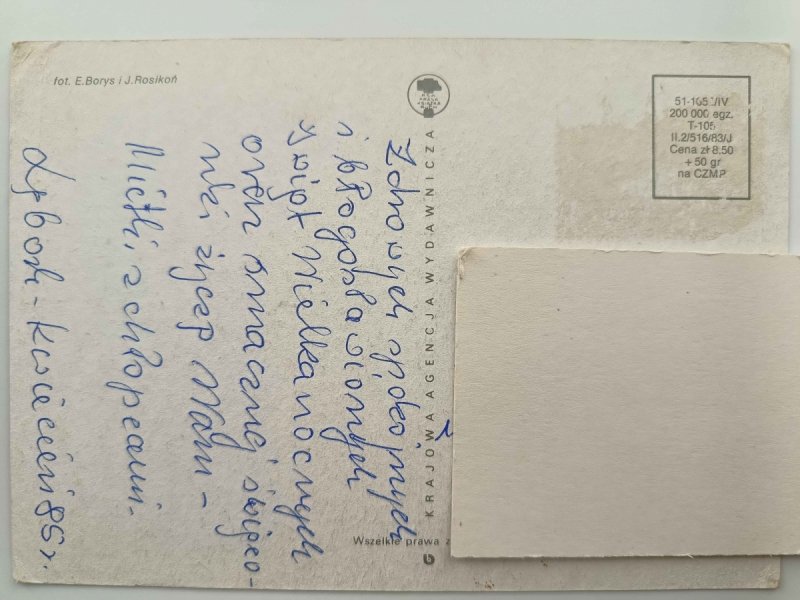 fot. E.Borys i J.Rosikoń
51-105 /IV
200 000 egz.
T-105
II.2/516/83/J
Cena zł 8,50
+ 50 gr
na CZMP
KRAJOWA AGENCJA WYDAWNICZA
Zdrowych spokojnych
i błogosławionych
Świąt Wielkanocnych
oraz smacznej święco-
nki życzę Wam -
z chłopcami.
kwiecień 85 r.
Wszelkie prawa z